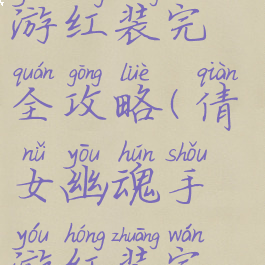 游红装完
quán gōng lüè qiàn
全攻略(倩
nǚ yōu hún shǒu
女幽魂手
yóu hóng zhuāng wán
游红装完